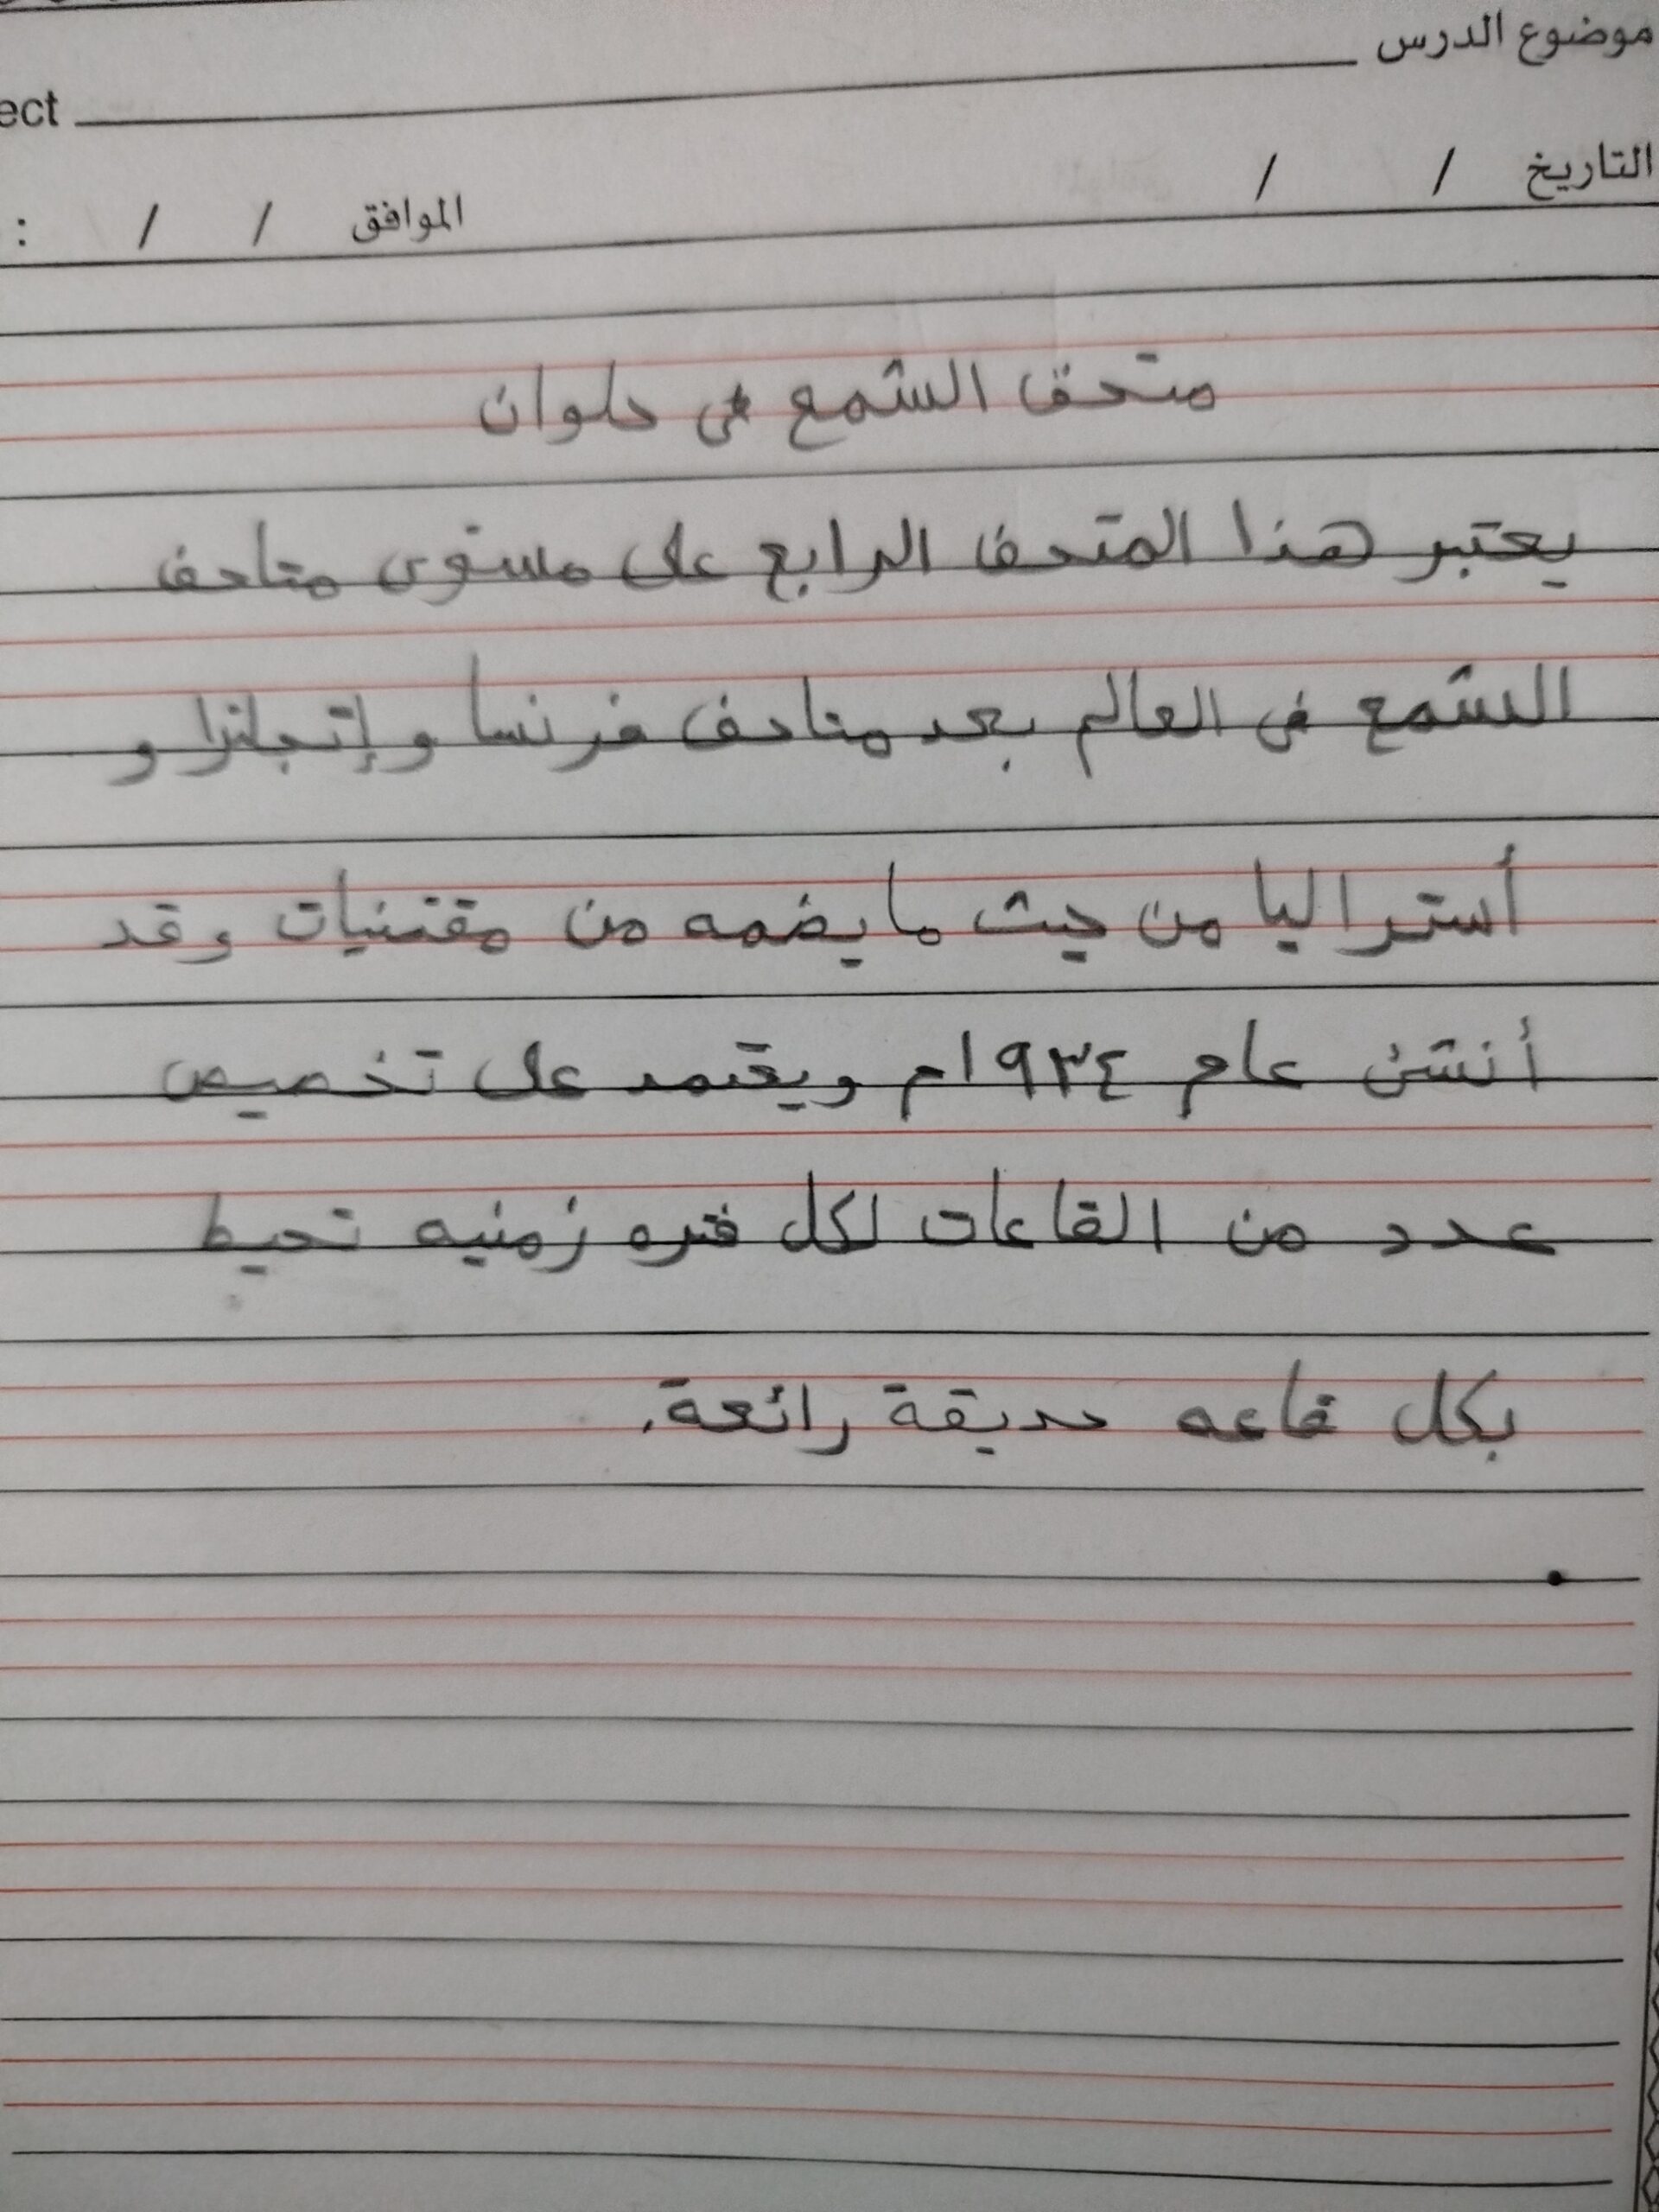 موضوع الدرس
ect
التاريخ / /
الموافق / / :
متحف الشمع في حلوان
يعتبر هذا المتحف الرابع على مستوى متاحف
الشمع في العالم بعد متاحف فرنسا و إنجلترا و
أستراليا من حيث ما يضمه من مقتنيات وقد
أنشئ عام ١٩٣٤م ويعتمد على تخصيص
عدد من القاعات لكل فتره زمنيه تحيط
بكل قاعه حديقة رائعة.